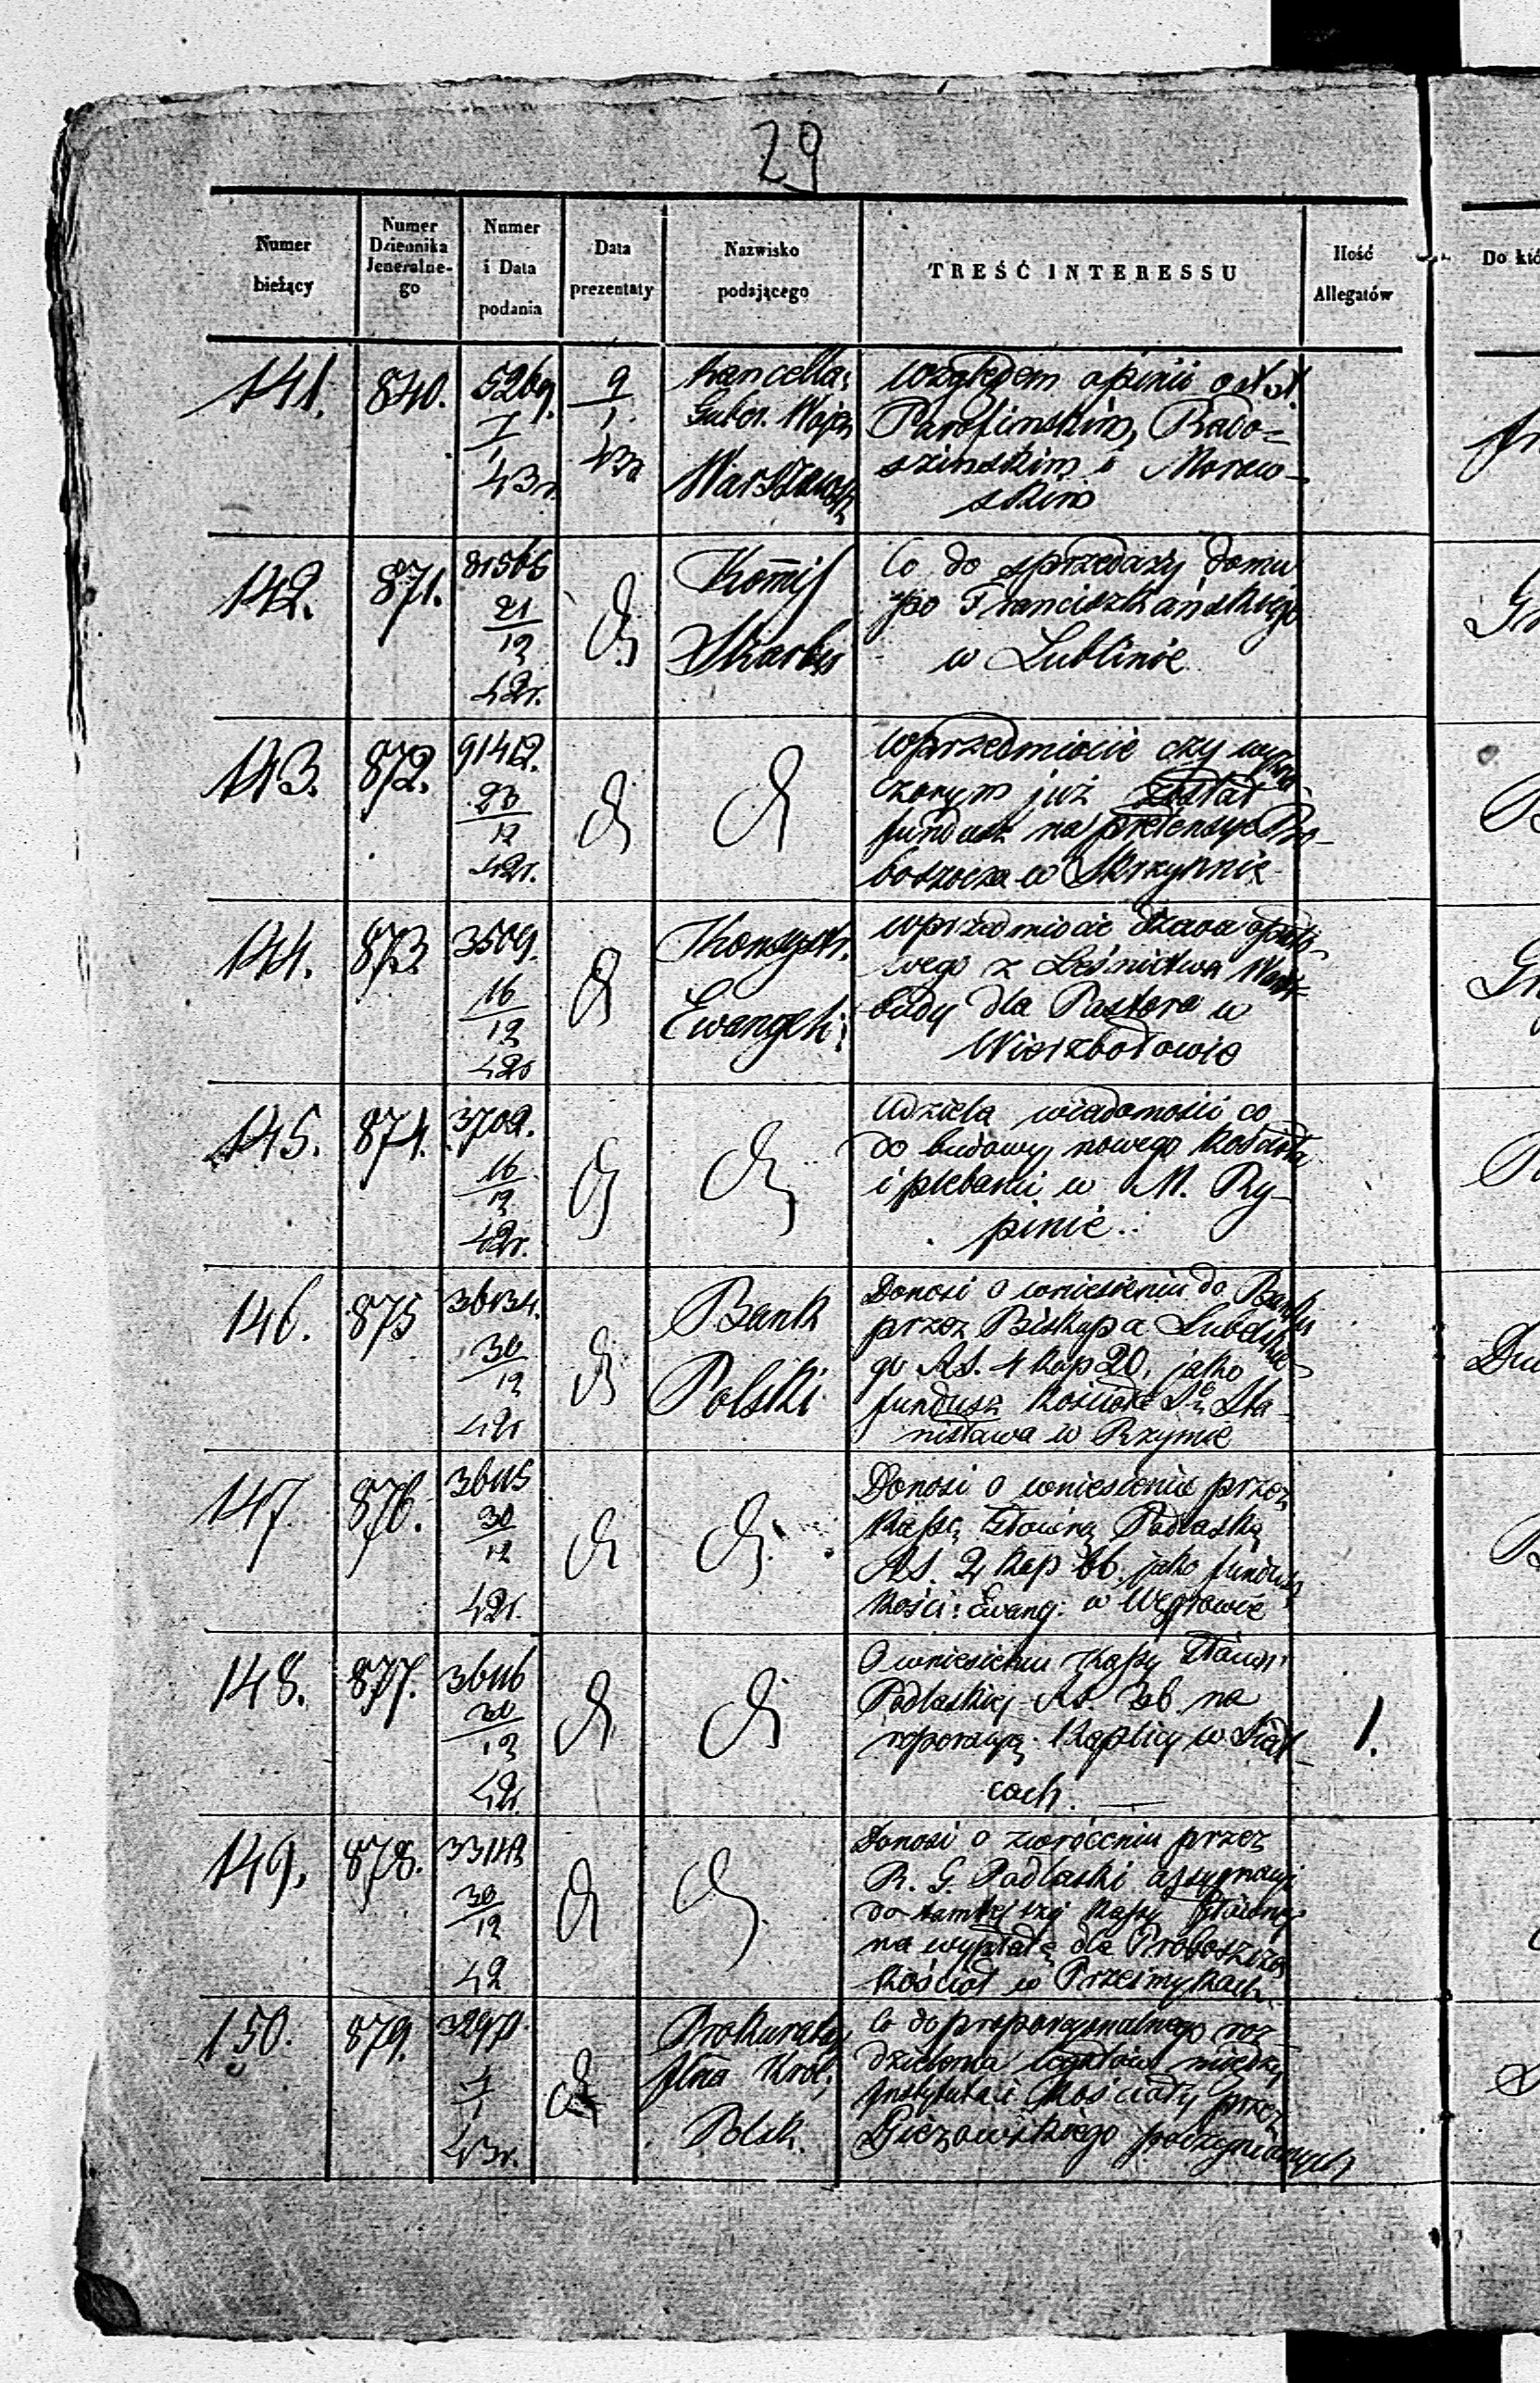 29
Numer bieżący
Numer Dziennika Jeneralnego
Numer i Data podania
Data prezentaty
Nazwisko podającego
TREŚĆ INTERESSU
Ilość Allegatów
Do któ
141. 840. 5269. 1/1 43r 9/1 43r Kancella: Guber. Wojen Warszawsk
względem opinii o
Radoszinskim i Morawskim
142. 871. 81565 21/12 42r. Kom̄iſ Skarbu
Co do sprzedaży domu
po Franciszkańskiego
w Lublinie
143. 872. 91412. 23/12 42r.
w przedmiocie czy wyzna-
czonym już został
fundusz na pretensye Pro-
boszcza w Skrzynnie
144. 873. 3509. 16/12 42r Konsystr. Ewangeli:
w przedmiocie drzewa opało-
wego z Leśnictwa
budy dla Pastora w
Wierzbołowie
145. 874. 3702. 16/12 42r.
Udziela wiadomości co
do budowy nowego Kościoła
i plebanii w M. Ry-
pinie.
146. 875 36134. 30/12 42r Bank Polski
Donosi o wniesieniu do Banku
przez Biskupa Lubelskie-
go RS. 4 kop 20, jako
fundusz Kościoła Sgo Sta-
nisława w Rzymie
147. 876. 36115 30/12 42r.
Donosi o wniesieniu przez
Kaſsę Główną Podlaską
RS. 2 kop 66. jako fundusz
Kości: Ewang: w Węgrowie
148. 877. 36116 30/12 42r.
O wniesieniu Kaſsy Główn:
Podlaskiej RS. na
reperacyą Kaplicy w Siedl-
cach.
1.
149. 878. 30/12 42
Donosi o zwróceniu przez
R. G. Podlaski aſsygnacyi
do tamtejszej Kaſsy Główney
na wypłatę dla Proboszcza
Kościoł w Przesmykach
150. 879. 1/1 43r. Prokurator Jlna Król: Polsk.
Co do proporcyonalnego roz-
dzielenia legatów między
Instytuta i Kościoły przez
poczynionych